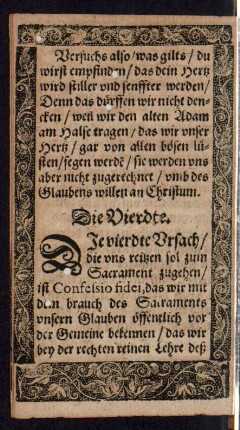 Versuchs also/was gilts/du
wirst empfinden/das dein Hertz
wird stiller vnd senffter werden/
Denn das dürffen wir nicht den-
cken/weil wir den alten Adam
am Halse tragen/das wir vnser
Hertz/gar von allen bösen lü-
sten/fegen werdē/sie werden vns
aber nicht zugerechnet/vmb des
Glaubens willen an Christum.
Die Vierdte.
DJe vierdte Vrsach/
die vns reitzen sol zum
Sacrament zugehen/
ist Confeſsio fidei, das wir mit
dem brauch des Sacraments
vnsern Glauben öffentlich vor
der Gemeine bekennen/das wir
bey der rechten reinen Lehre deß